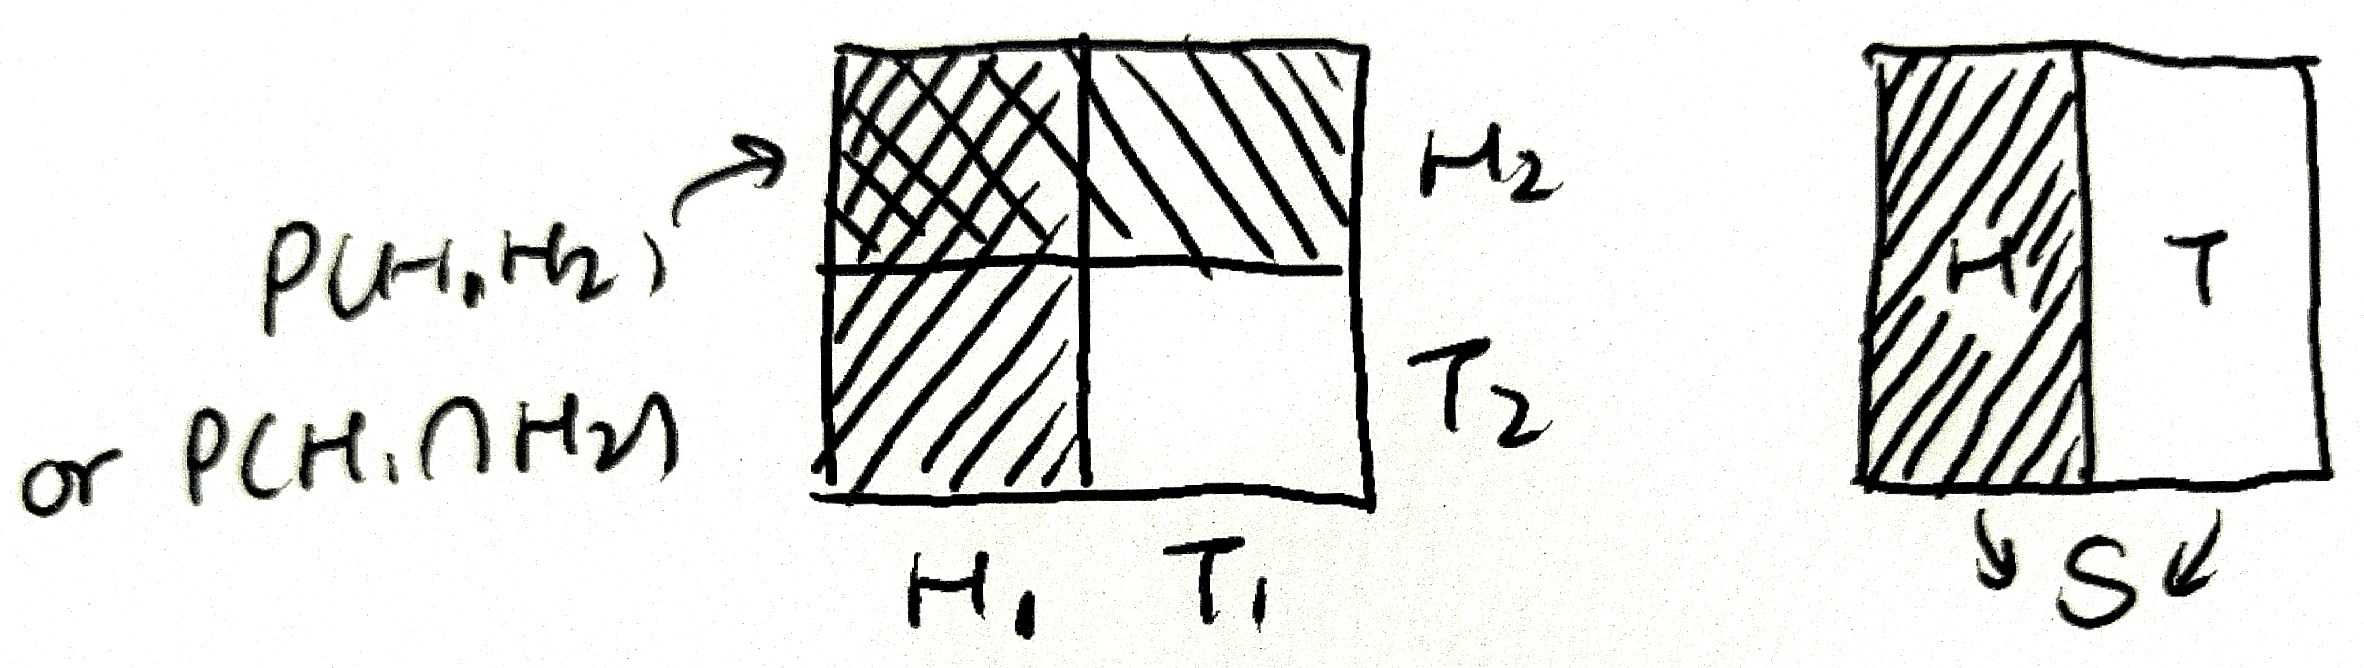 P(H₁,H₂)
or P(H₁∩H₂)
H₂
T₂
H₁ T₁
H T
S